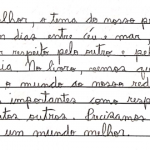 melhor, o tema do nosso p
m dias entre céu e mar,
r respeito pelo outro e pel
ia. No livro, vemos qu
o mundo ao nosso red
importantes como resp
tos outros. Precisamos
um mundo melhor.